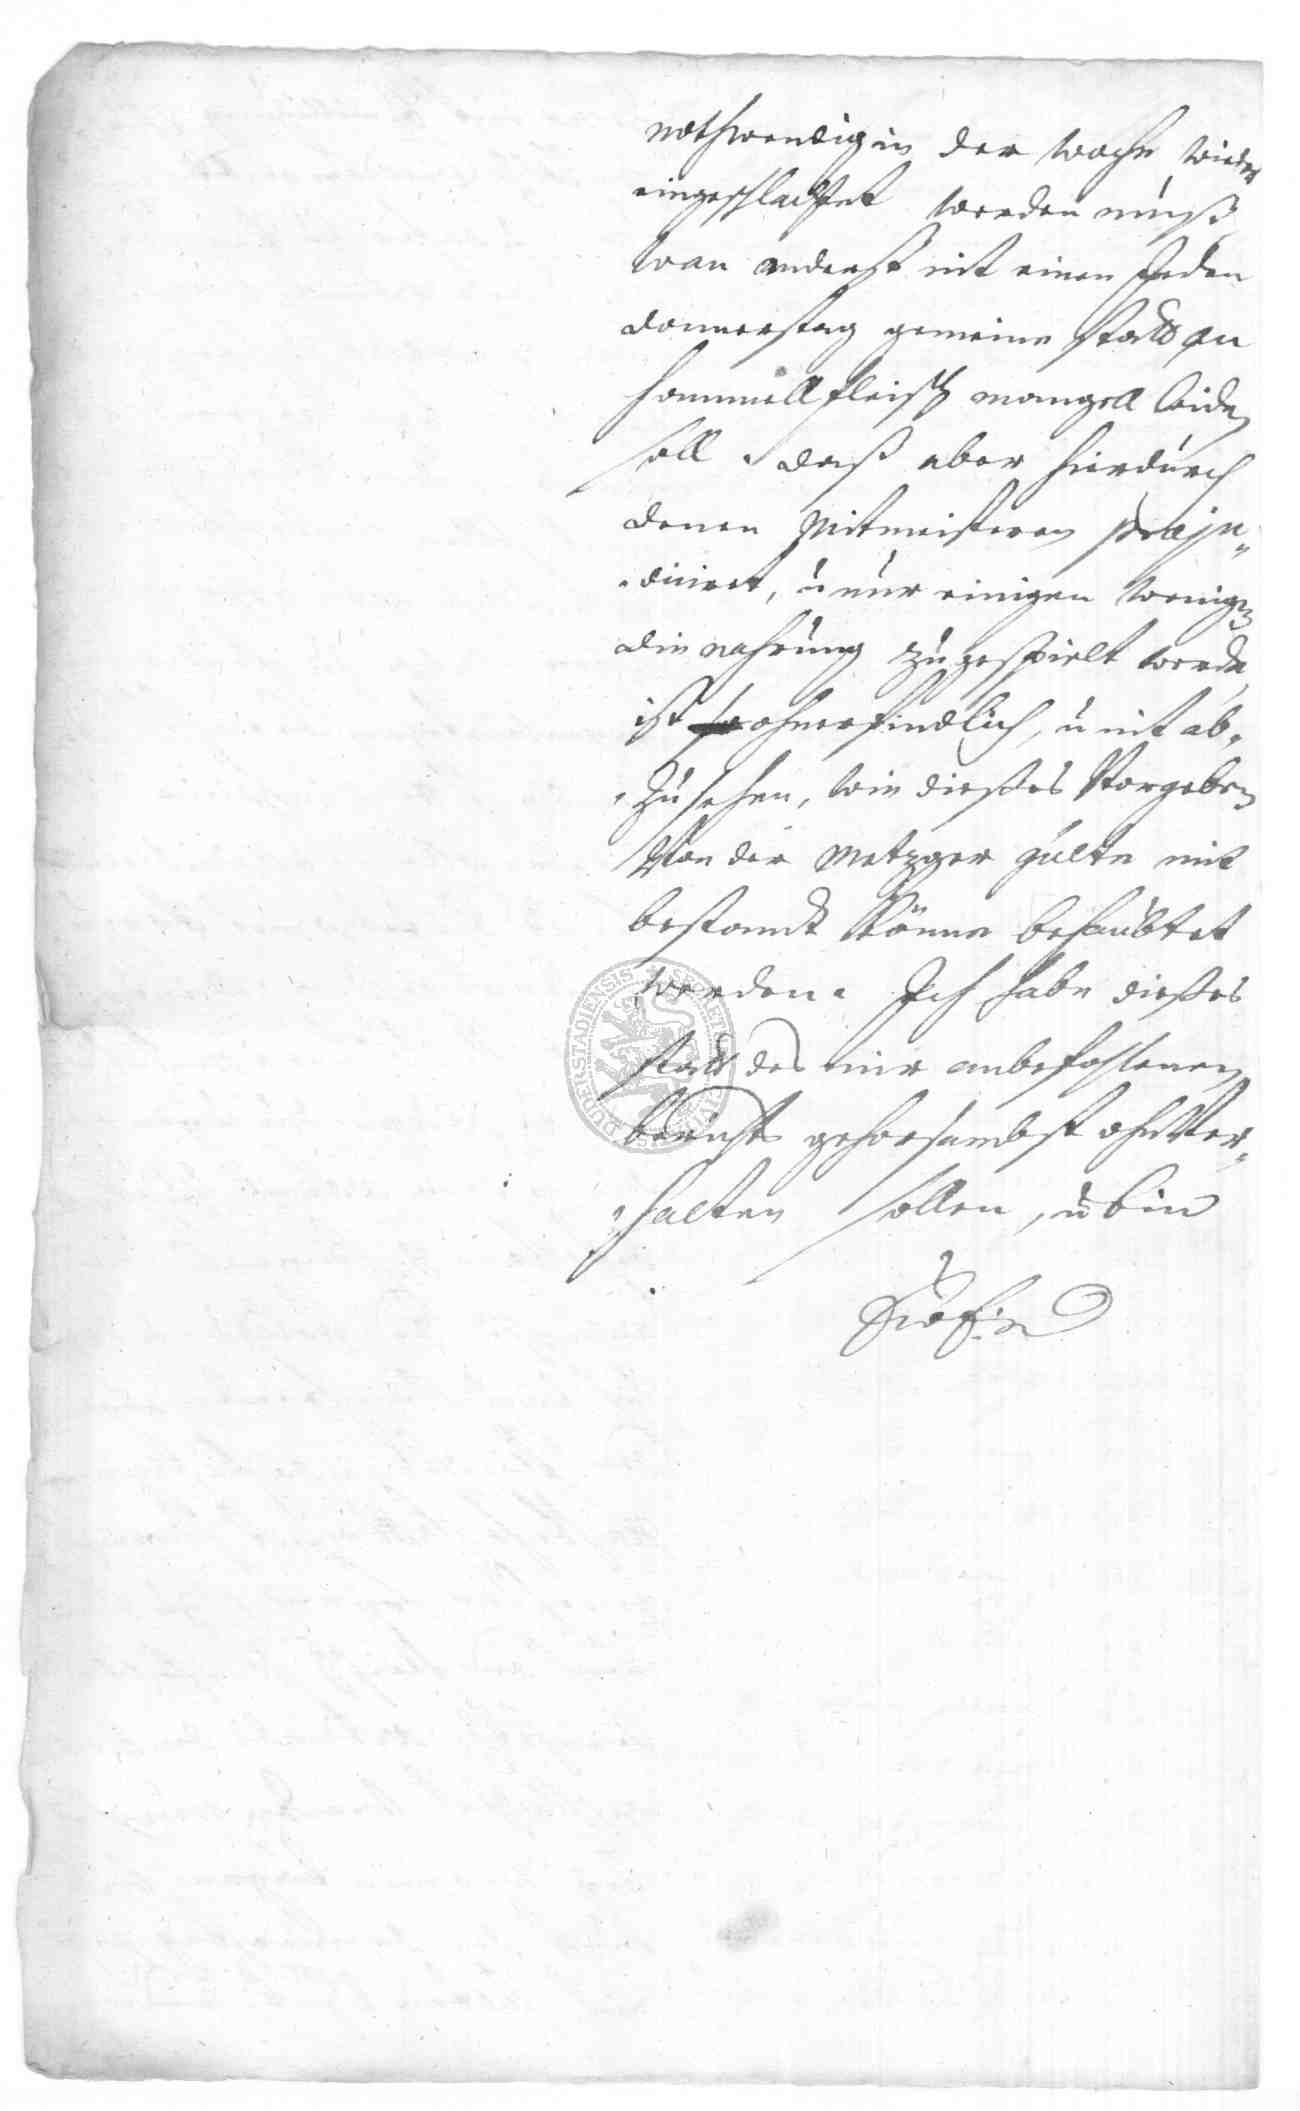 nothwendig in der woche wieder
eingeschlachtet werden muß,
wan anderst nit einen jeden
donnerstag gemeine statt an
hammellfleisch mangell leiden
soll. daß aber hierdurch
denen Mitmeisteren præju-
diciret, u nur einigen wenigen
die nahrung zugespielt werde,
ist ohnerfindlich, u nit ab-
zusehen, wie dießes Vorgeben
Von der Metzger gülte mit
bestandt könne behaubtet
werden. Ich habe dießes
statt des mir anbefohlenen
berichts gehorsambst ohnVer-
halten sollen, u bin
SIGILLUM SECRETUM CIVITATIS DUDERSTADIENSIS